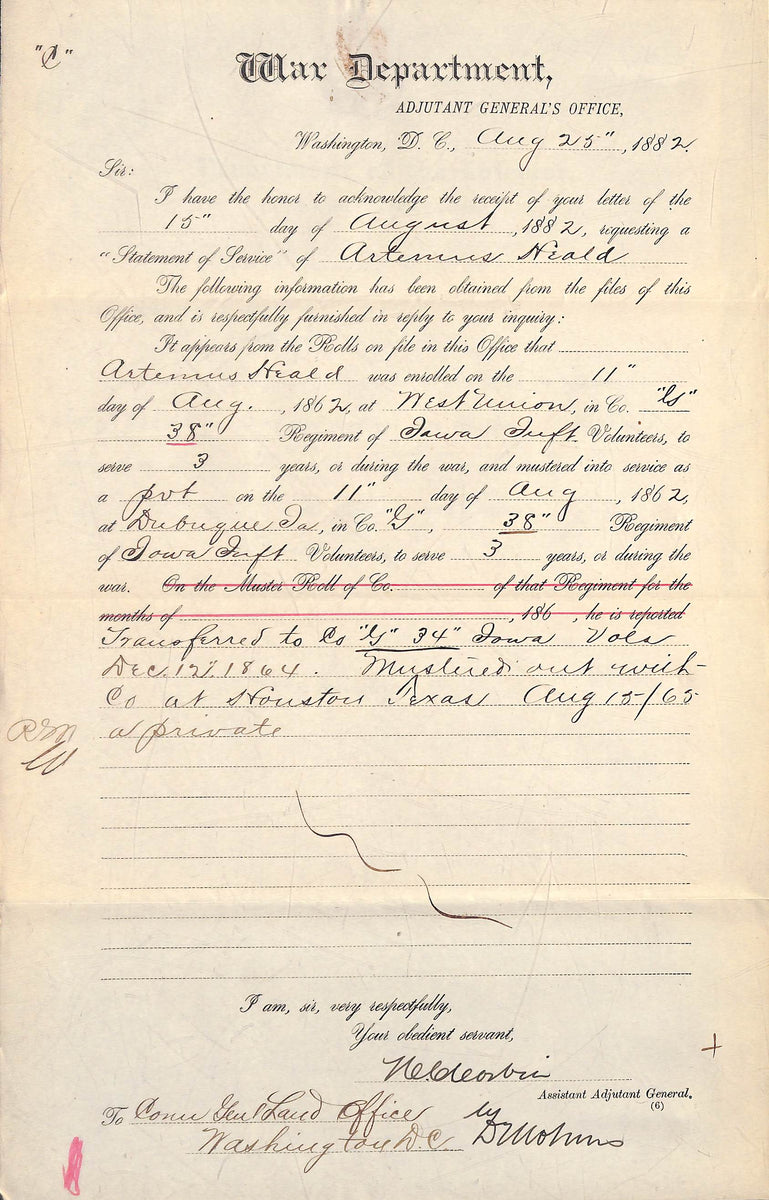 "C"
War Department,
ADJUTANT GENERAL'S OFFICE,
Washington, D. C., Aug 25", 1882.
Sir:
I have the honor to acknowledge the receipt of your letter of the
15" day of August, 1882, requesting a
"Statement of Service" of Artemus Heald
The following information has been obtained from the files of this
Office, and is respectfully furnished in reply to your inquiry:
It appears from the Rolls on file in this Office that
Artemus Heald was enrolled on the 11"
day of Aug., 1862, at West Union, in Co. "G"
38" Regiment of Iowa Inft Volunteers, to
serve 3 years, or during the war, and mustered into service as
a pvt on the 11" day of Aug, 1862,
at Dubuque Ia, in Co. "G", 38" Regiment
of Iowa Inft Volunteers, to serve 3 years, or during the
war. On the Muster Roll of Co. of that Regiment for the
months of , 186 , he is reported
Transferred to Co "G" 34" Iowa Vols
Dec. 12", 1864. Mustered out with
Co at Houston Texas Aug 15/65
a private
I am, sir, very respectfully,
Your obedient servant,
Assistant Adjutant General.
(6)
To Comr Genl Land Office by
Washington D.C.